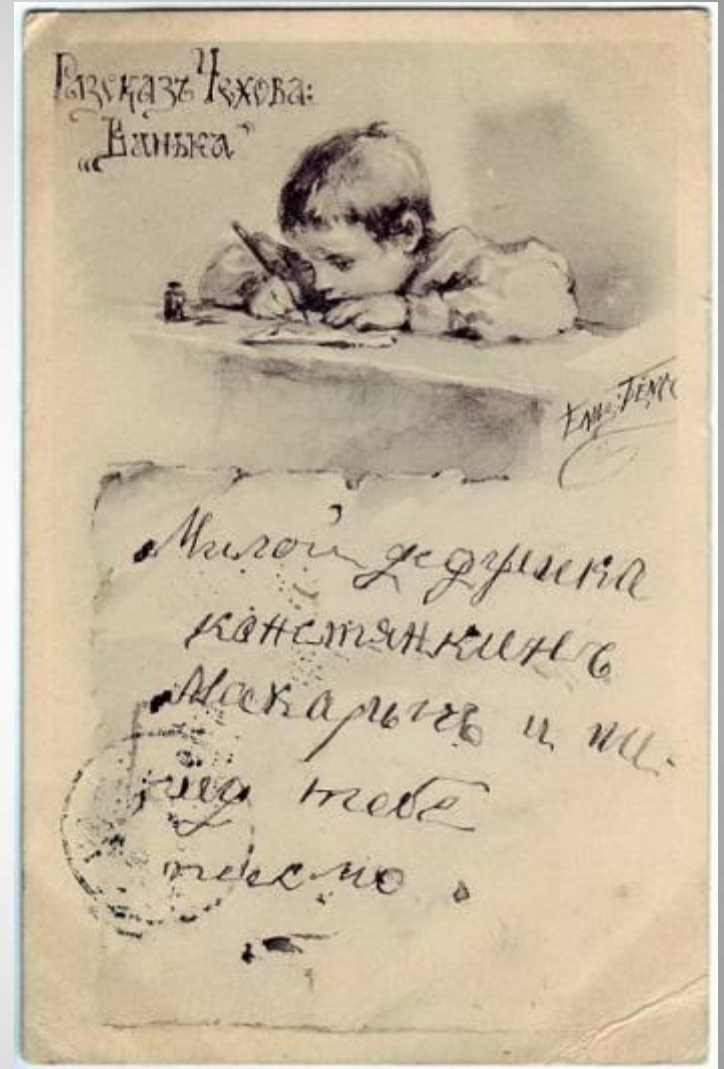 Разсказъ Чехова:
„Ванька"
Милой дедушка
констянкинъ
Макарычъ и пи-
шу тебе
писмо.